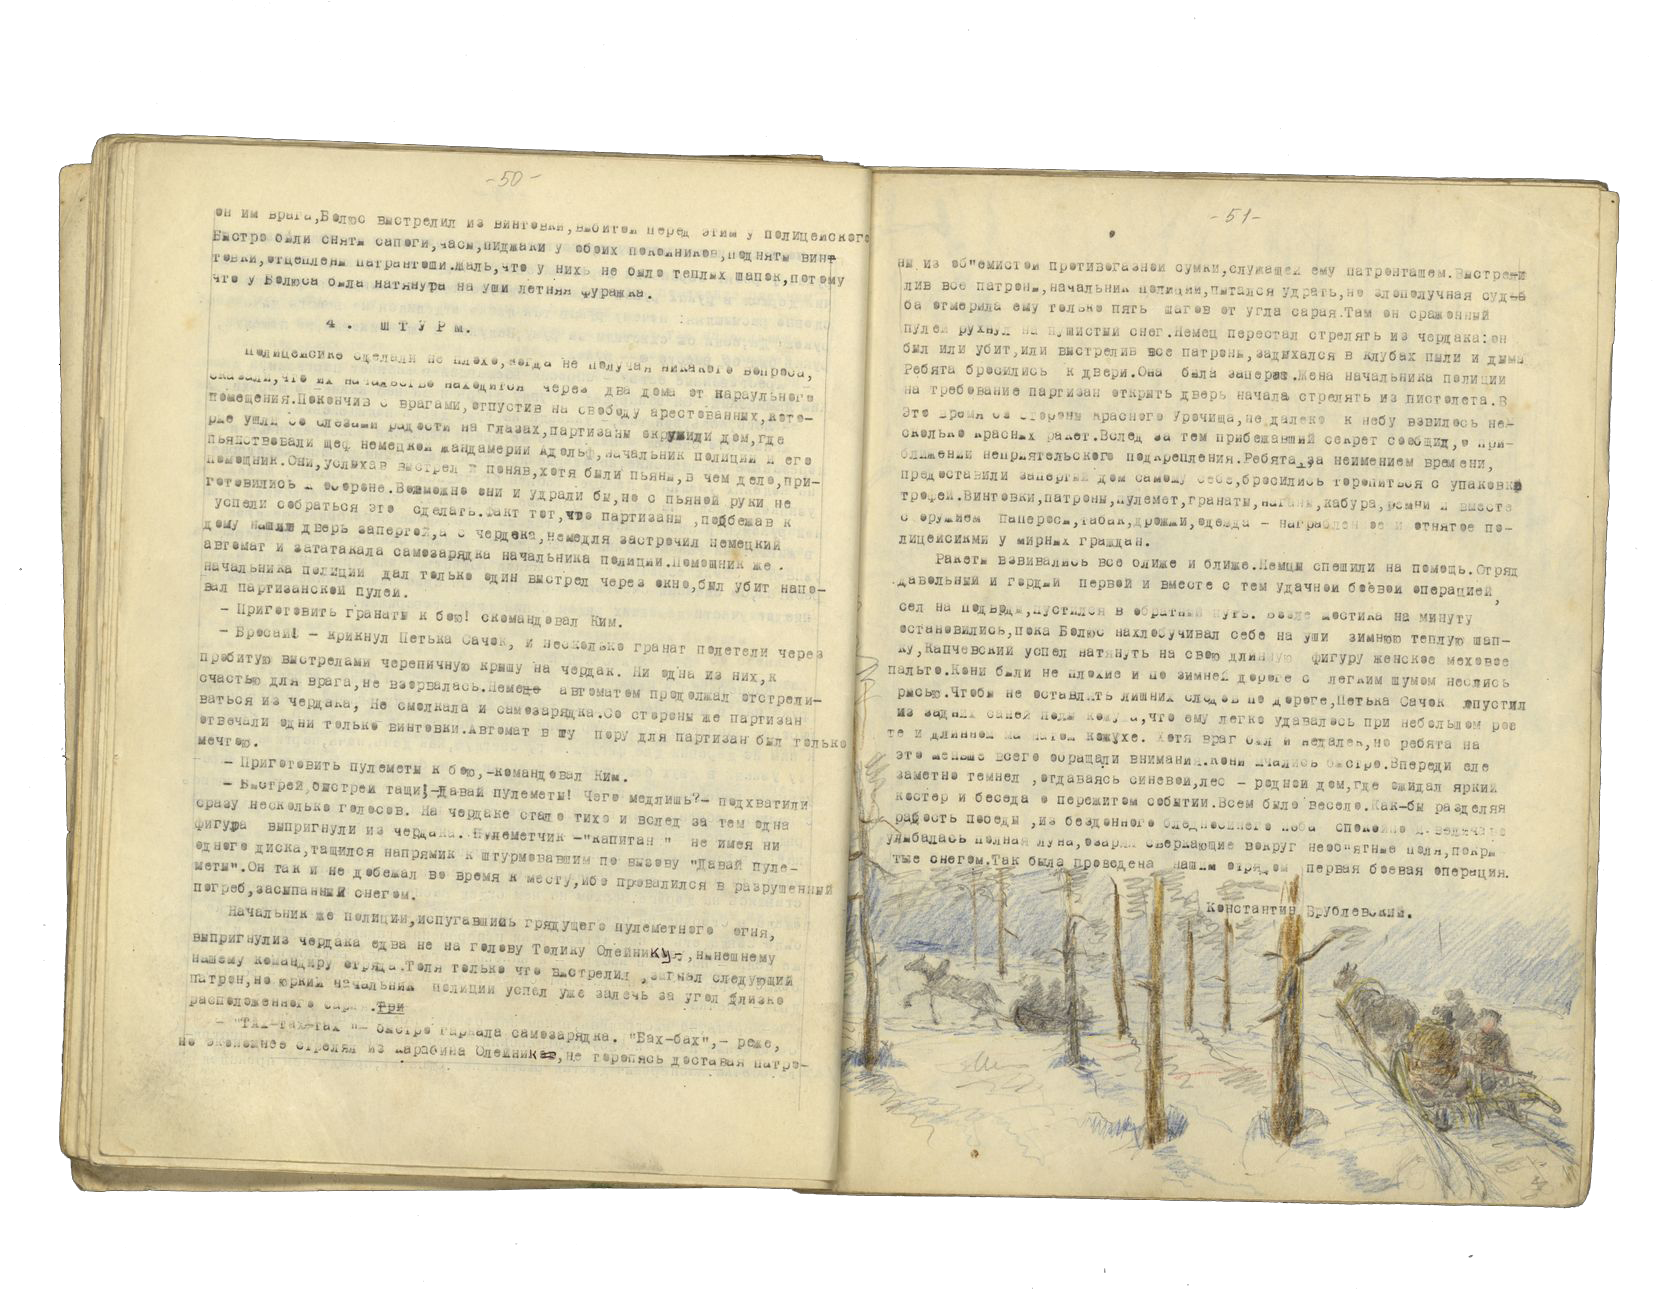 -50-
он им врага,Болюс выстрелил из винтовки,выбитой перед этим у полицейского
Быстро были сняты сапоги,часы,пиджаки у обоих покойников,подняты винт
товки,отцеплены патронтоши.Жаль,что у них не было теплых шапок,потому
что у Болюса была натянута на уши летняя фуражка.
4. ШТУРМ.
Полицейские сделали не плохо,когда не получая никакого вопроса,
сказали,что их начальство находится через два дома от караульного
помещения.Покончив с врагами,отпустив на свободу арестованных,кото-
рые ушли со слезами радости на глазах,партизаны окружили дом,где
пьянствовали шеф немецкой жандамерии Адольф,начальник полиции и его
помощник.Они,услыхав выстрел и поняв,хотя были пьяны,в чем дело,при-
готовились к обороне.Возможно они и удрали бы,но с пьяной руки не
успели собраться это сделать.Факт тот,что партизаны ,подбежав к
дому нашли дверь запертой,а с чердака,немедля застрочил немецкий
автомат и зататакала самозарядка начальника полиции.Помощник же .
начальника полиции дал только один выстрел через окно,был убит напо-
вал партизанской пулей.
- Приготовить гранаты к бою! скомандовал Ким.
- Бросай! - крикнул Петька Сачок, и несколько гранат полетели через
пробитую выстрелами черепичную крышу на чердак. Ни одна из них,к
счастью для врага,не взорвалась.Немец автоматом продолжал отстрели-
ваться из чердака, Не смолкала и самозарядка.Со стороны же партизан
отвечали одни только винтовки.Автомат в ту пору для партизан был только
мечтою.
- Приготовить пулеметы к бою,-командовал Ким.
- Быстрей,быстрей тащи!-Давай пулеметы! Чего медлишь?- подхватили
сразу несколько голосов. На чердаке стало тихо и вслед за тем одна
фигура выпригнули из чердака. Пулеметчик -"капитан " не имея ни
одного диска,тащился напрямик к штурмовавшим по вызову "Давай пуле-
меты".Он так и не добежал во время к месту,ибо провалился в разрушенный
погреб,засыпанный снегом.
Начальник же полиции,испугавшись грядущего пулеметного огня,
выпригнулиз чердака едва не на голову Толику Олейнику,нынешнему
нашему командиру отряда.Толя только что выстрелил ,загнал следующий
патрон,но юркий начальник полиции успел уже залечь за угол близко
расположенного сарая.Три
- "Тах-тах-тах "- быстро гаркала самозарядка. "Бах-бах",- реже,
но экономнее стрелял из карабина Олейник,не торопясь доставая патро-
-51-
ны из об"емистой противогазной сумки,служащей ему патронташем.Выстрели
лив все патроны,начальник полиции,пытался удрать,но злополучная судьба
ба отмерила ему только пять шагов от угла сарая.Там он сраженный
пулей рухнул на пушистый снег.Немец перестал стрелять из чердака:он
был или убит,или выстрелив все патроны,задыхался в клубах пыли и дыма
Ребята бросились к двери.Она была заперта.Жена начальника полиции
на требование партизан открыть дверь начала стрелять из пистолета.В
это время со стороны Красного Урочища,недалеко к небу взвилось не-
сколько красных ракет.Вслед за тем прибежавший секрет сообщил,о при-
ближении неприятельского подкрепления.Ребята,за неимением времени,
предоставили запертый дом самому себе,бросились торопиться с упаковко
трофей.Винтовки,патроны,пулемет,гранаты,наганы,кабура,ремни и вместе
с оружием паперосы,табак,дрожжи,одежда - награбленное и отнятое по-
лицейсикми у мирных граждан.
Ракеты взвивались все ближе и ближе.Немцы спешили на помощь.Отряд
давольный и гордый первой и вместе с тем удачной боевой операцией,
сел на подводы,пустился в обратный путь. Возле мостика на минуту
остановились,пока Болюс нахлобучивал себе на уши зимнюю теплую шап-
ку,Капчевский успел натянуть на свою длинную фигуру женское меховое
пальто.Кони были не плохие и по зимней дороге с легким шумом неслись
рысью.Чтобы не оставлять лишних следов по дороге,Петька Сачок опустил
из задних саней полы кожуха,что ему легко удавалось при небольшом рос
те и длинном кожухе. Хотя враг был и недалек,но ребята на
это меньше всего обращали внимания.Кони мчались быстро.Впереди еле
заметно темнел ,отдаваясь синевой,лес - родной дом,где ожидал яркий
костер и беседа о пережитом событии.Всем было весело.Как-бы разделяя
радость победы ,из бездонного бледносинего неба спокойно и величаво
улыбалась полная луна,озаряя сверкающие вокруг необъятные поля,покры
тые снегом.Так была проведена нашим отрядом первая боевая операция.
Константин Врублевский.